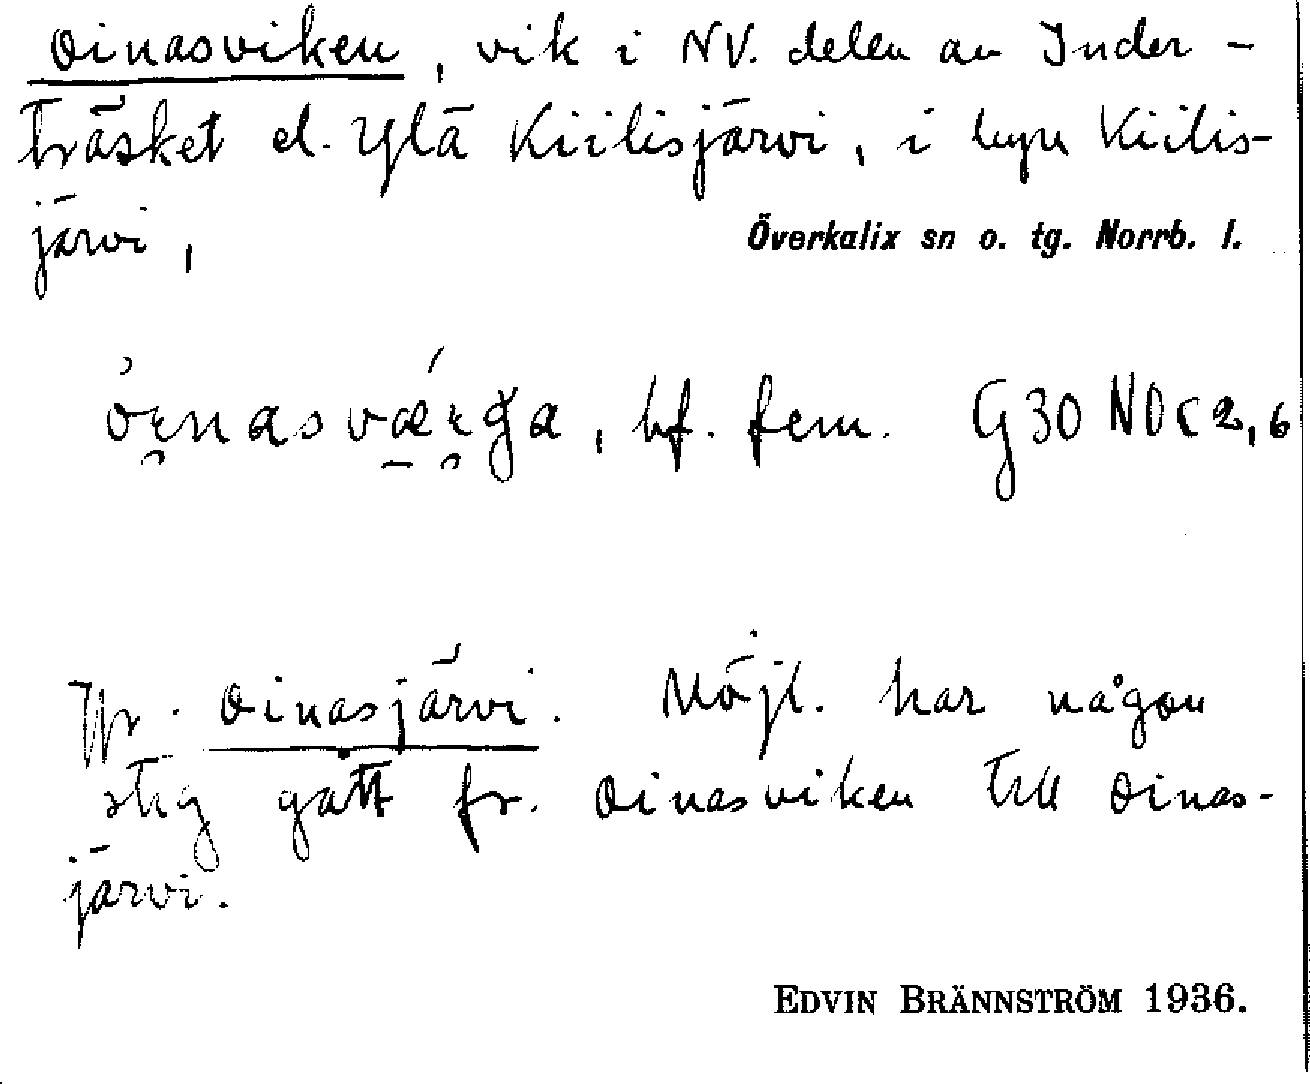 Oinasviken, vik i NV. delen av Inder-
träsket el. Ylä Kiilisjärvi, i byn Kiilis-
järvi,
Överkalix sn o. tg. Norrb. l.
hf. fem. G30 NO c 2,6
Jfr. Oinasjärvi. Möjl. har någon
stig gått fr. Oinasviken till Oinas-
järvi.
EDVIN BRÄNNSTRÖM 1936.